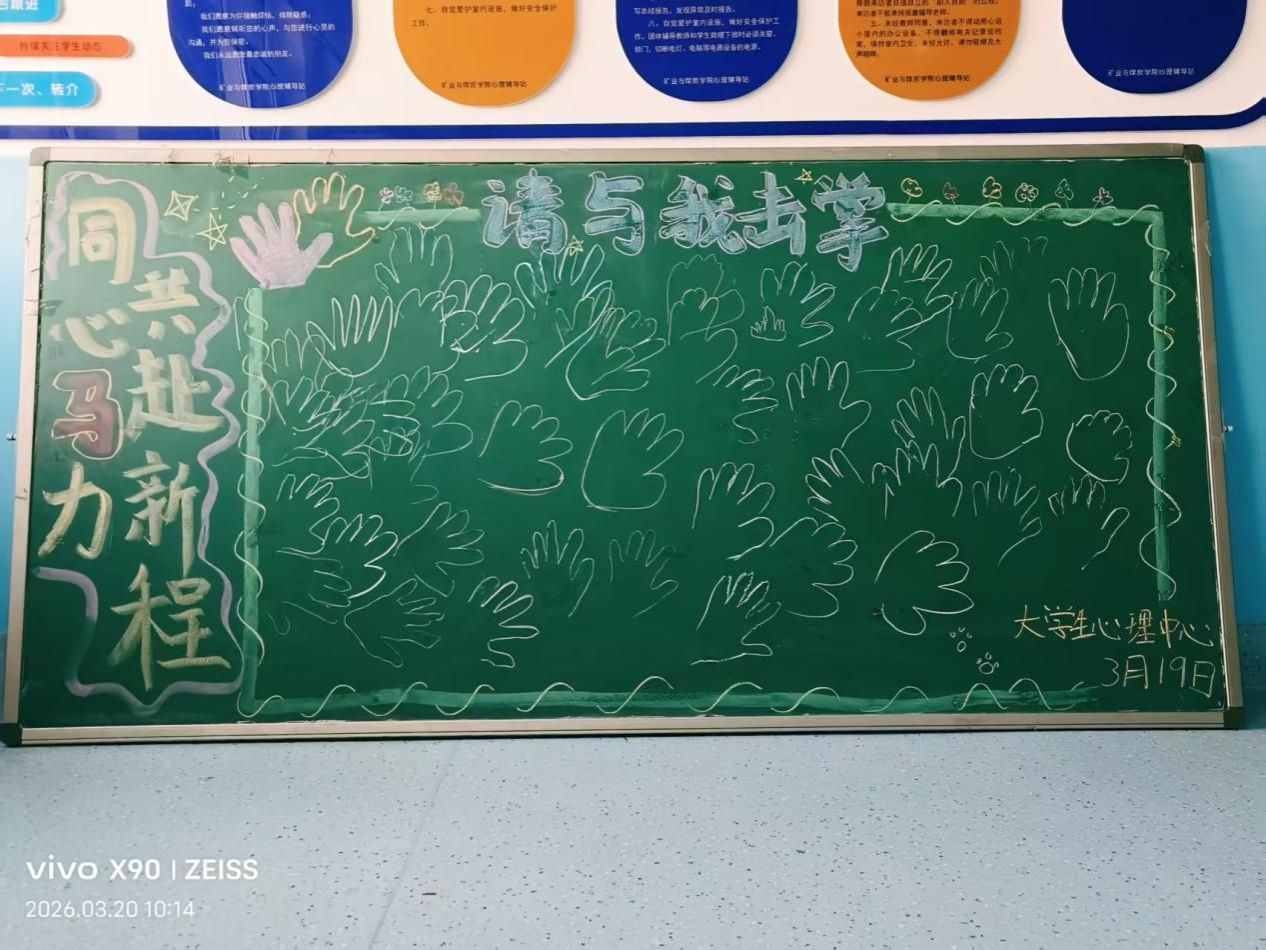 后跟进
持续关注学生动态
下一次、转介
助。
我们愿意为你接触烦恼，排除疑惑；
我们愿意倾听您的心声，与您进行心灵的
沟通，并为您保密。
我们永远是您最忠诚的朋友。
矿业与煤炭学院心理辅导站
七、自觉爱护室内设施，做好安全保护
工作。
矿业与煤炭学院心理辅导站
写总结报告，发现异常及时报告。
八、自觉爱护室内设施，做好安全保护工
作。团体辅导教师和学生助理下班时必须关窗、
锁门，切断电灯、电脑等电器设备的电源。
矿业与煤炭学院心理辅导站
来访者不能单纯依重辅导老师。
五、未经教师同意，来访者不得动用心语
小屋内的办公设备，不得翻阅有关记录或档
案，保持室内卫生，未经允许，请勿吸烟及大
声喧哗。
矿业与煤炭学院心理辅导站
矿业与煤炭学院心理辅导站
请与我击掌
同心马力
共赴新程
大学生心理中心
3月19日
vivo X90 | ZEISS
2026.03.20 10:14